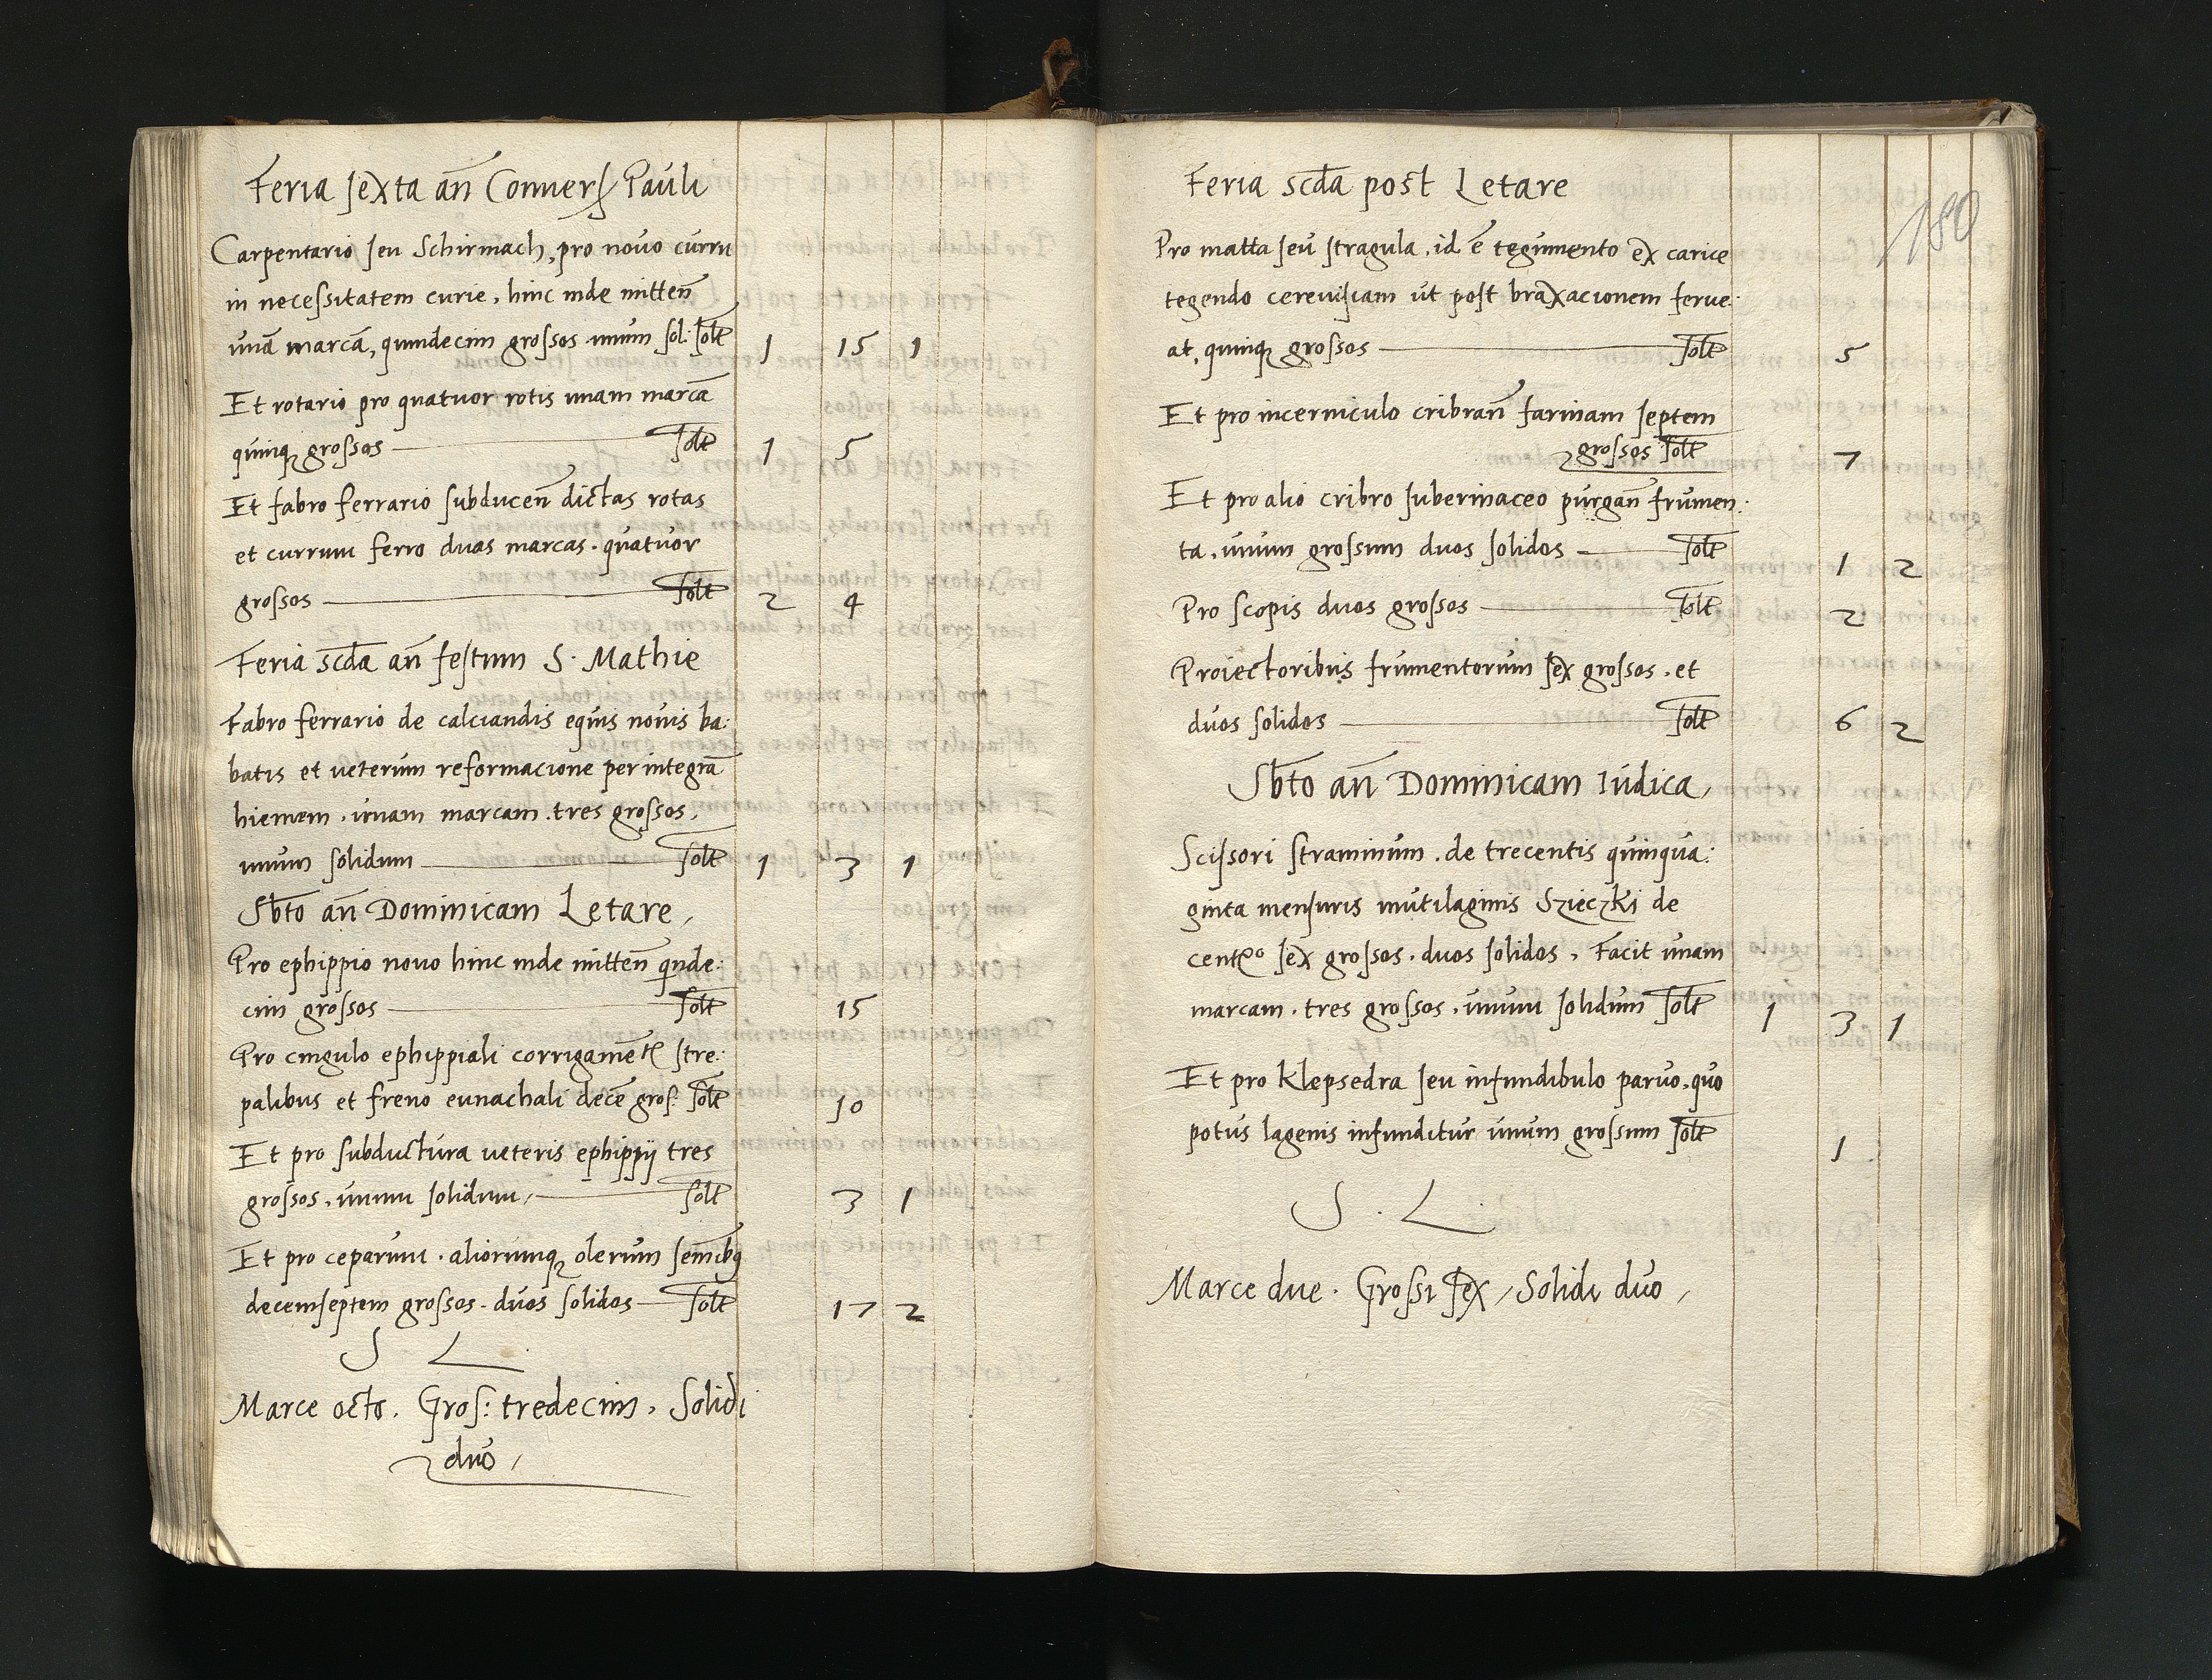 Feria sexta an̄ Conuers Pauli
Carpentario seu Schirmach, pro novo curru
in necessitatem curie, hinc inde mitten̄
vnā marcā, quindecim grossos unum sol: solt 1 15 1
Et rotario pro quatuor rotis unam marcā
quinq grossos solt 1 5
Et fabro ferrario subducen̄ dictas rotas
et currum ferro duas marcas. quatuor
grossos solt 2 4
Feria scd̄a an̄ festum S. Mathie
Fabro ferrario de calciandis equis novis ba:
batis et veterum reformacione per integrā
hiemem. unam marcam. tres grossos,
unum solidum solt 1 3 1
Sbt̄o an̄ Dominicam Letare,
Pro ephippio novo hinc inde mitten̄ qnde:
cim grossos solt 15
Pro cingulo ephippiali corrigamēt stre:
palibus et freno eunachali decē gros: solt 10
Et pro subductura veteris ephippij tres
grossos. unum solidum, solt 3 1
Et pro ceparum. aliorumq olerum semībq
decemseptem grossos. duos solidos solt 17 2
S L
Marce octo. Gros: tredecim, Solidi
duo,
180
Feria scd̄a post Letare
Pro matta seu stragula. id ē tegumento ex carice
tegendo cerevisiam ut post braxacionem ferue:
at, quinq grossos solt 5
Et pro incerniculo cribran̄ farinam septem
grossos solt 7
Et pro alio cribro suberinaceo purgan̄ frumen:
ta. unum grossum duos solidos solt 1 2
Pro scopis duos grossos solt 2
Proiectoribus frumentorum sex grossos. et
duos solidos solt 6 2
Sbt̄o an̄ Dominicam Iudica,
Scissori straminum. de trecentis quinqua:
ginta mensuris mutilaginis Szieczki de
centō sex grossos. duos solidos, Facit unam
marcam. tres grossos. unum solidum solt 1 3 1
Et pro Klepsedra seu infundibulo paruo. quo
potus lagenis infunditur unum grossum solt 1
S. L.
Marce due. Grossi sex, Solidi duo,